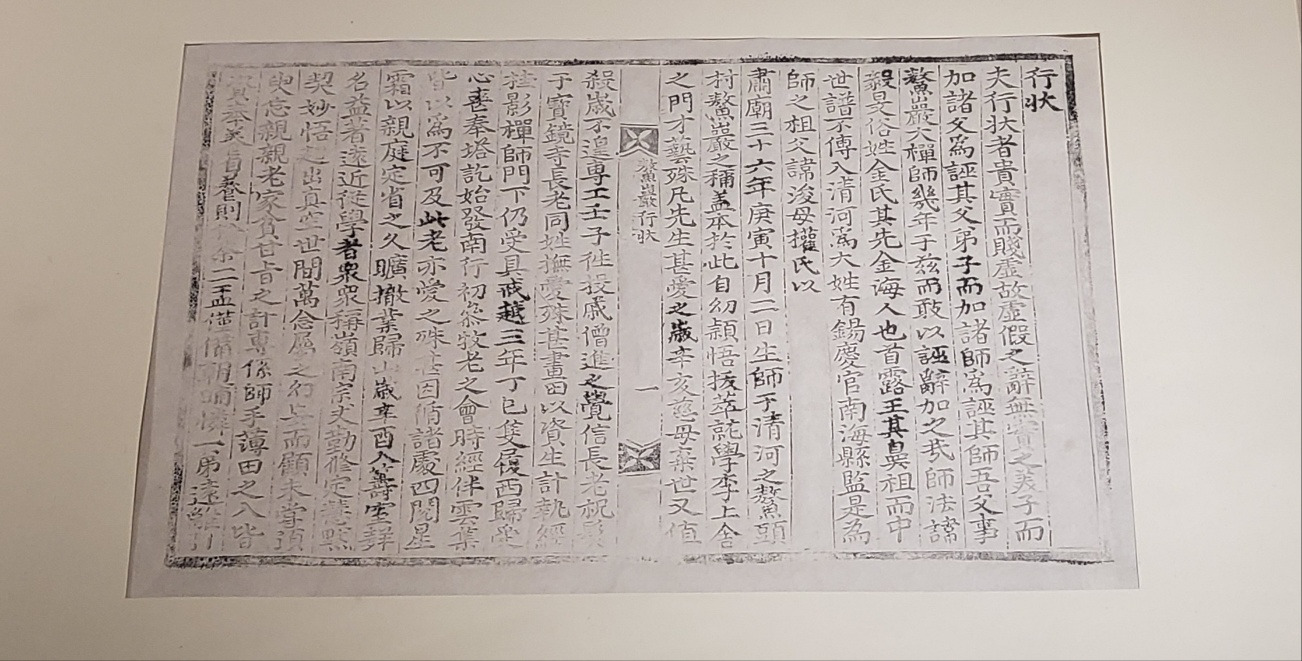 行狀
夫行狀者貴實而賤虛故虛假之辭無實之夫子而
加諸父爲誣其父弟子而加諸師爲誣其師吾父事
鰲巖大禪師幾年于玆而敢以誣辭加之我師法諱
毅旻俗姓金氏其先金海人也首露王其鼻祖而中
世譜不傳入淸河爲大姓有錫慶官南海縣監是爲
師之祖父諱浚母權氏以
肅廟三十六年庚寅十月二日生師于淸河之鰲頭
村鰲巖之稱盖本於此自幼頴悟拔萃就學李上舍
之門才藝殊凡先生甚愛之歲辛亥慈母棄世又値
鰲巖行狀
一
殺歲不遑專工壬子徃投戚僧進之覺信長老祝髮
于寶鏡寺長老同姓撫愛殊甚畫田以資生計執經
桂影禪師門下仍受具戒越三年丁巳隻履西歸
心喪奉塔訖始發南行初叅牧老之會時經伴雲集
皆以爲不可及此老亦愛之殊甚因徧諸處四閱星
霜以親庭定省之久曠撤業歸山歲辛酉入籌室拜
名益著遠近從學者衆衆稱嶺南宗丈勤修定慧默
契妙悟之出眞空世間萬念屬之幻上而顧未嘗須
臾忘親親老家貧甘旨之計專係師手薄田之入皆